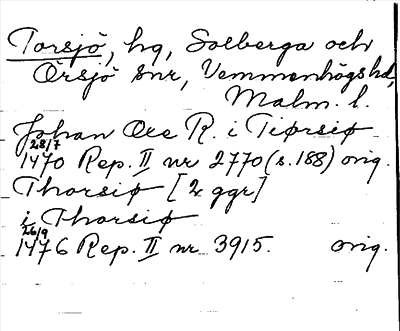 Torsjö, hg, Solberga och
Örsjö snr, Vemmenhögs hd,
Malm. l.
Johan Ore R. i Tiørsiø
28/7
1470 Rep. II nr 2770 (s. 188) orig.
Thorsiø [2 ggr]
i Thorsiø
26/9
1476 Rep. II nr 3915. orig.